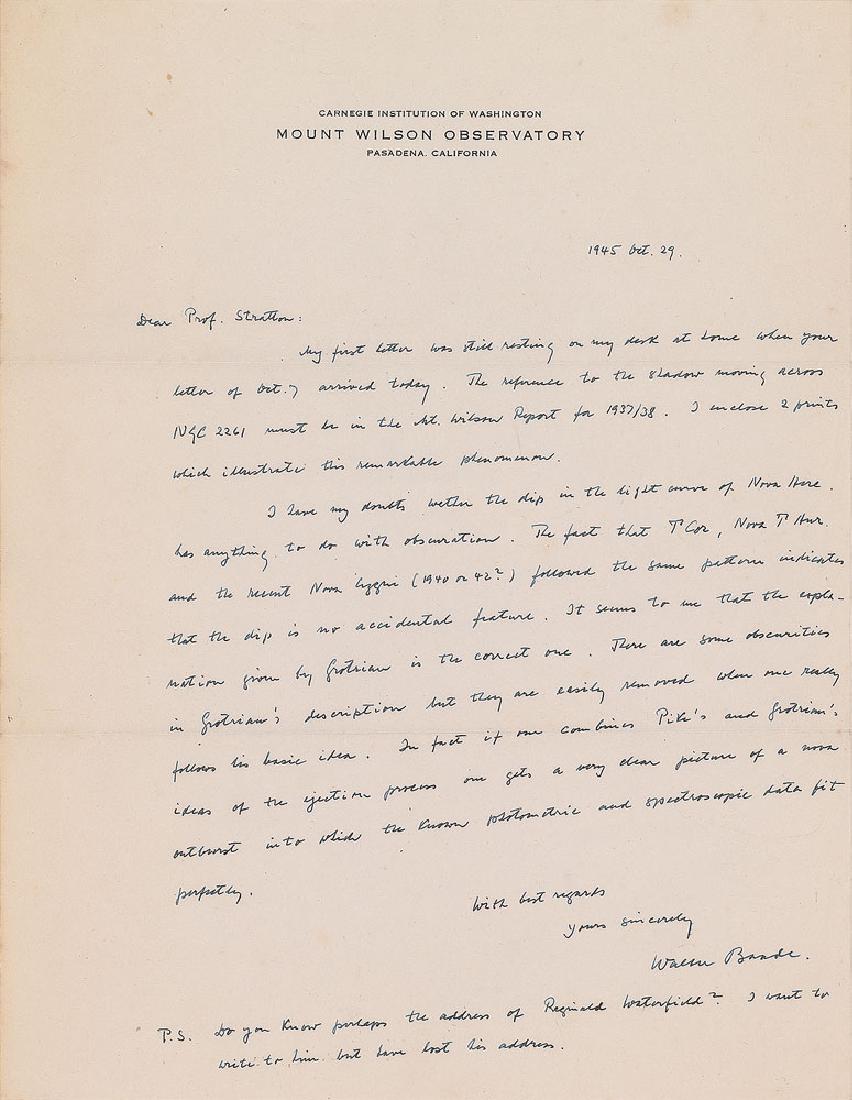 CARNEGIE INSTITUTION OF WASHINGTON
MOUNT WILSON OBSERVATORY
PASADENA, CALIFORNIA
1945 Oct. 29.
Dear Prof. Stratton:
My first letter was still resting on my desk at home when your
letter of Oct. 7 arrived today. The reference to the shadow moving across
NGC 2261 must be in the Mt. Wilson Report for 1937/38. I enclose 2 prints
which illustrate this remarkable phenomenon.
I have my doubts wether the dip in the light curve of Nova Herc.
has anything to do with obscuration. The fact that T Cor, Nova T Aur.
and the recent Nova (1940 or 42?) followed the same pattern indicates
that the dip is no accidental feature. It seems to me that the expla-
nation given by Grotrian is the correct one. There are some obscurities
in Grotrian's description but they are easily removed when one really
follows his basic idea. In fact if one combines Pike's and Grotrian's
ideas of the ejection process one gets a very clear picture of a nova
outburst into which the known photometric and spectroscopic data fit
perfectly.
With best regards
yours sincerely
Walter Baade.
P.S. Do you know perhaps the address of Reginald Waterfield? I want to
write to him but have lost his address.